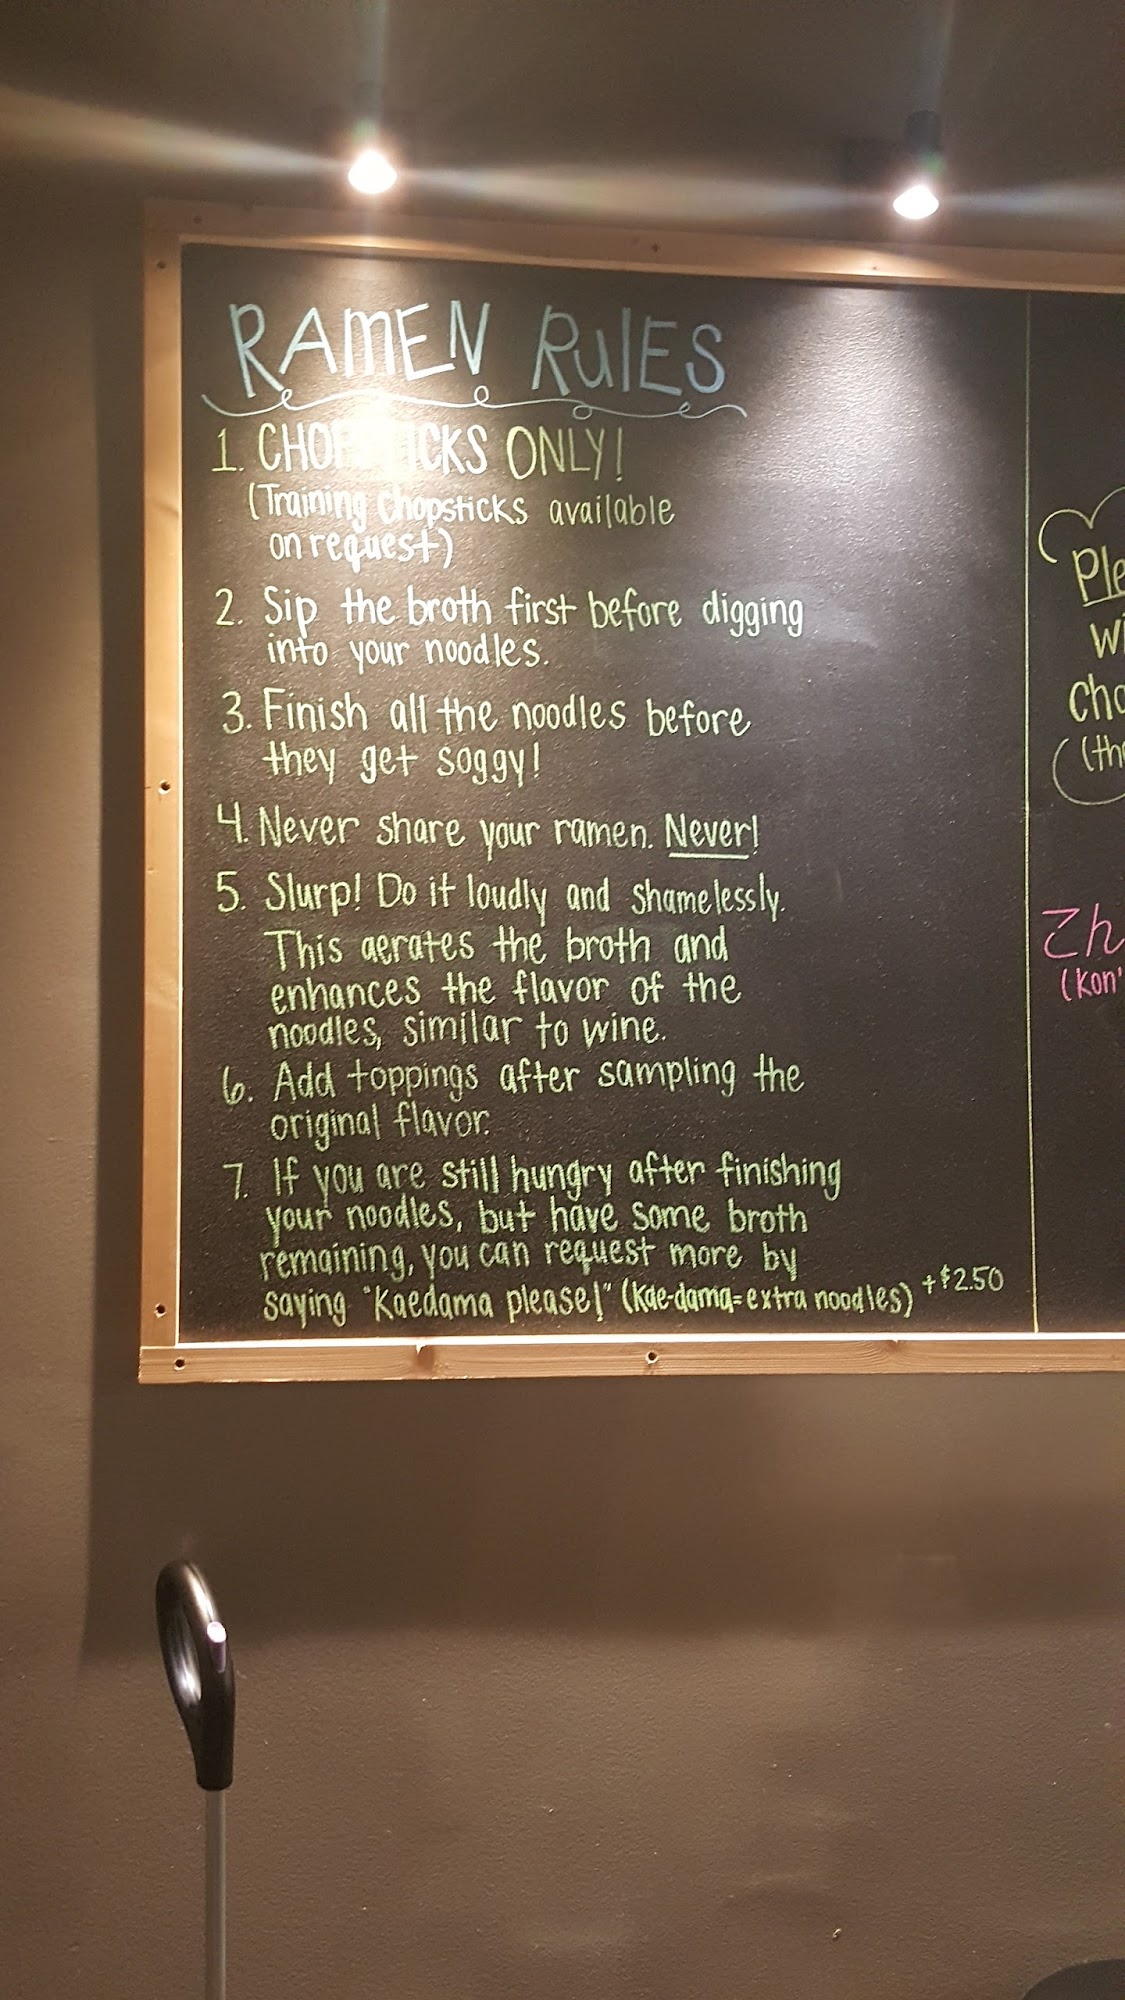 RAMEN RulES
1. CHOPSTICKS ONLY!
(Training chopsticks available
on request)
2. Sip the broth first before digging
into your noodles.
3. Finish all the noodles before
they get soggy!
4. Never share your ramen. Never!
5. Slurp! Do it loudly and shamelessly.
This aerates the broth and
enhances the flavor of the
noodles, similar to wine.
6. Add toppings after sampling the
original flavor.
7. If you are still hungry after finishing
your noodles, but have some broth
remaining, you can request more by
saying "Kaedama please!" (Kae-dama=extra noodles) +$2.50
Ple
wi
cho
(the
こん
(Kon'